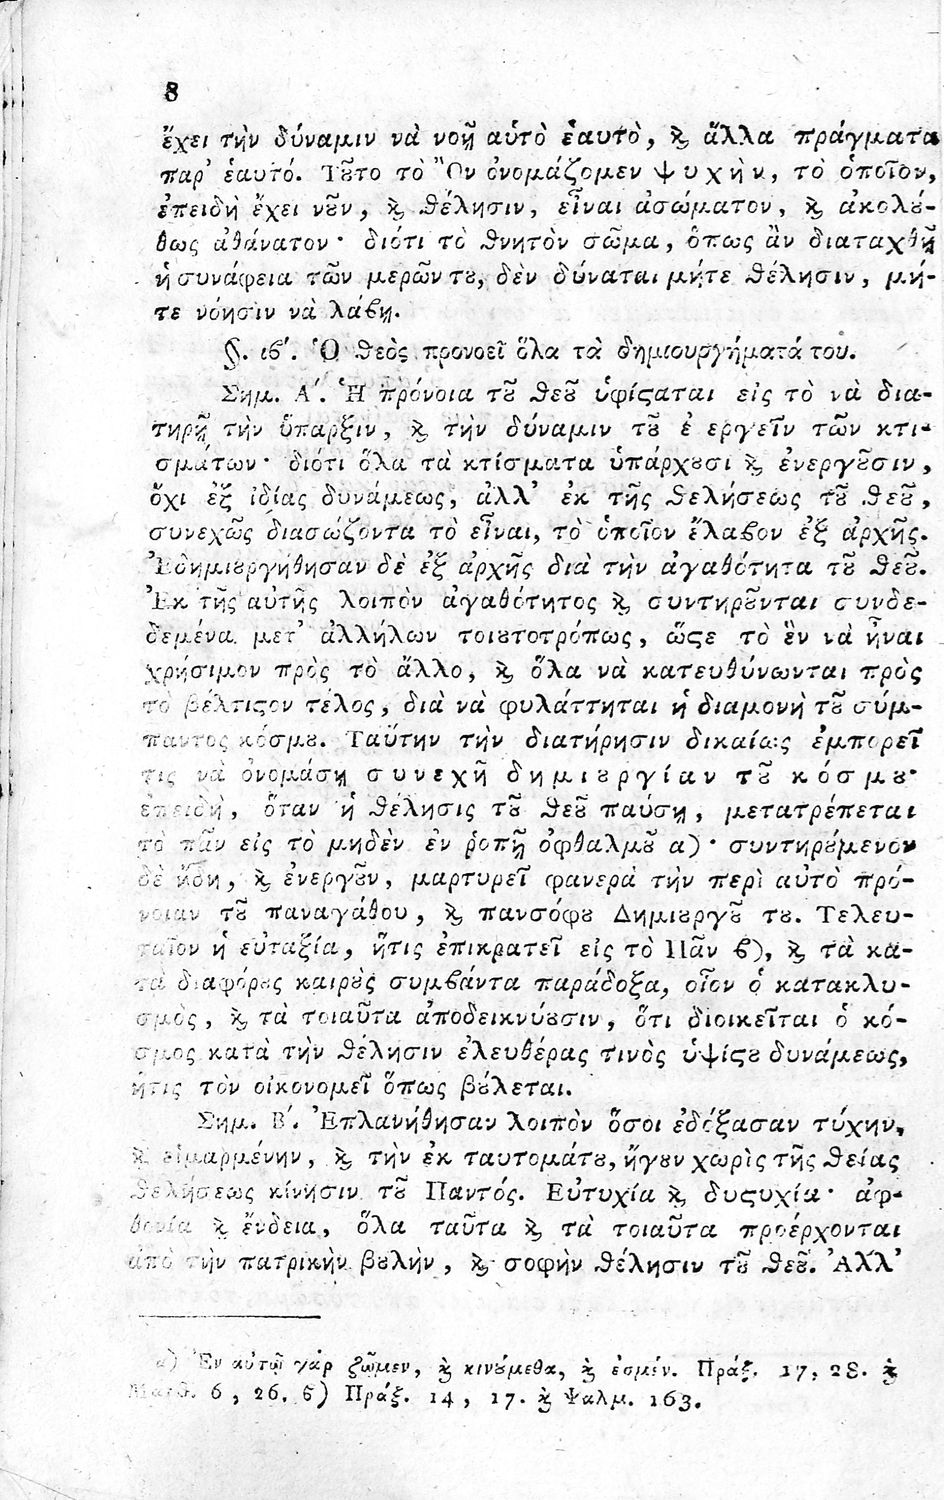 8
ἔχει τὴν δύναμιν νὰ νοῇ αὑτὸ ἑαυτὸ, ϗ̀ ἄλλα πράγματα
παρ' ἑαυτό. Τȣ͂το τὸ Ὂν ὀνομάζομεν ψυχὴν, τὸ ὁποῖον,
ἐπειδὴ ἔχει νȣ͂ν, ϗ̀ θέλησιν, εἶναι ἀσώματον, ϗ̀ ἀκολȣ́-
θως ἀθάνατον· διότι τὸ θνητὸν σῶμα, ὅπως ἂν διαταχθῇ
ἡ συνάφεια τῶν μερῶν τȣ, δὲν δύναται μήτε θέλησιν, μή-
τε νόησιν νὰ λάϐῃ.
§. ιϐ'. Ὁ Θεὸς προνοεῖ ὅλα τὰ δημιουργήματά του.
Σημ. Α'. Ἡ πρόνοια τȣ͂ Θεȣ͂ ὑφίϛαται εἰς τὸ νὰ δια-
τηρῇ τὴν ὕπαρξιν, ϗ̀ τὴν δύναμιν τȣ͂ ἐ εργεῖν τῶν κτι-
σμάτων· διότι ὅλα τὰ κτίσματα ὑπάρχȣσι ϗ̀ ἐνεργȣ͂σιν,
ὄχι ἐξ ἰδίας δυνάμεως, ἀλλ' ἐκ τῆς θελήσεως τȣ͂ Θεȣ͂,
συνεχῶς διασώζοντα τὸ εἶναι, τὸ ὁποῖον ἔλαϐον ἐξ ἀρχῆς.
Ἐδημιȣργήθησαν δὲ ἐξ ἀρχῆς διὰ τὴν ἀγαθότητα τȣ͂ Θεȣ͂.
Ἐκ τῆς αὐτῆς λοιπὸν ἀγαθότητος ϗ̀ συντηρȣ͂νται συνδε-
δεμένα μετ' ἀλλήλων τοιȣτοτρόπως, ὥϛε τὸ ἓν νὰ ἦναι
χρήσιμον πρὸς τὸ ἄλλο, ϗ̀ ὅλα νὰ κατευθύνωνται πρὸς
τὸ βέλτιϛον τέλος, διὰ νὰ φυλάττηται ἡ διαμονὴ τȣ͂ σύμ-
παντος κόσμȣ. Ταύτην τὴν διατήρησιν δικαίως ἐμπορεῖ
τις νὰ ὀνομάσῃ συνεχῆ δημιȣργίαν τȣ͂ κόσμȣ·
ἐπειδὴ, ὅταν ἡ θέλησις τȣ͂ Θεȣ͂ παύσῃ, μετατρέπεται
τὸ πᾶν εἰς τὸ μηδὲν ἐν ῥοπῇ ὀφθαλμȣ͂ α)· συντηρȣ́μενον
δὲ ἤδη, ϗ̀ ἐνεργȣ͂ν, μαρτυρεῖ φανερὰ τὴν περὶ αὐτὸ πρό-
νοιαν τȣ͂ παναγάθου, ϗ̀ πανσόφȣ Δημιȣργȣ͂ τȣ. Τελευ-
ταῖον ἡ εὐταξία, ἥτις ἐπικρατεῖ εἰς τὸ Πᾶν ϐ), ϗ̀ τὰ κα-
τὰ διαφόρȣς καιρȣ̀ς συμϐάντα παράδοξα, οἷον ὁ κατακλυ-
σμὸς, ϗ̀ τὰ τοιαῦτα ἀποδεικνύȣσιν, ὅτι διοικεῖται ὁ κό-
σμος κατὰ τὴν θέλησιν ἐλευθέρας τινὸς ὑψίϛȣ δυνάμεως,
ἥτις τὸν οἰκονομεῖ ὅπως βȣ́λεται.
Σημ. Β'. Ἐπλανήθησαν λοιπὸν ὅσοι ἐδόξασαν τύχην,
ϗ̀ εἱμαρμένην, ϗ̀ τὴν ἐκ ταυτομάτȣ, ἤγȣν χωρὶς τῆς θείας
θελήσεως κίνησιν τȣ͂ Παντός. Εὐτυχία ϗ̀ δυϛυχία· ἀφ-
θονία ϗ̀ ἔνδεια, ὅλα ταῦτα ϗ̀ τὰ τοιαῦτα προέρχονται
ἀπὸ τὴν πατρικὴν βȣλὴν, ϗ̀ σοφὴν θέλησιν τȣ͂ Θεȣ͂. Ἀλλ'
α) Ἐν αὐτῷ γάρ ζῶμεν, ϗ̀ κινȣ́μεθα, ϗ̀ ἐσμέν. Πράξ. 17, 28. ϗ̀
Ματθ. 6, 26. ϐ) Πράξ. 14, 17. ϗ̀ Ψαλμ. 163.